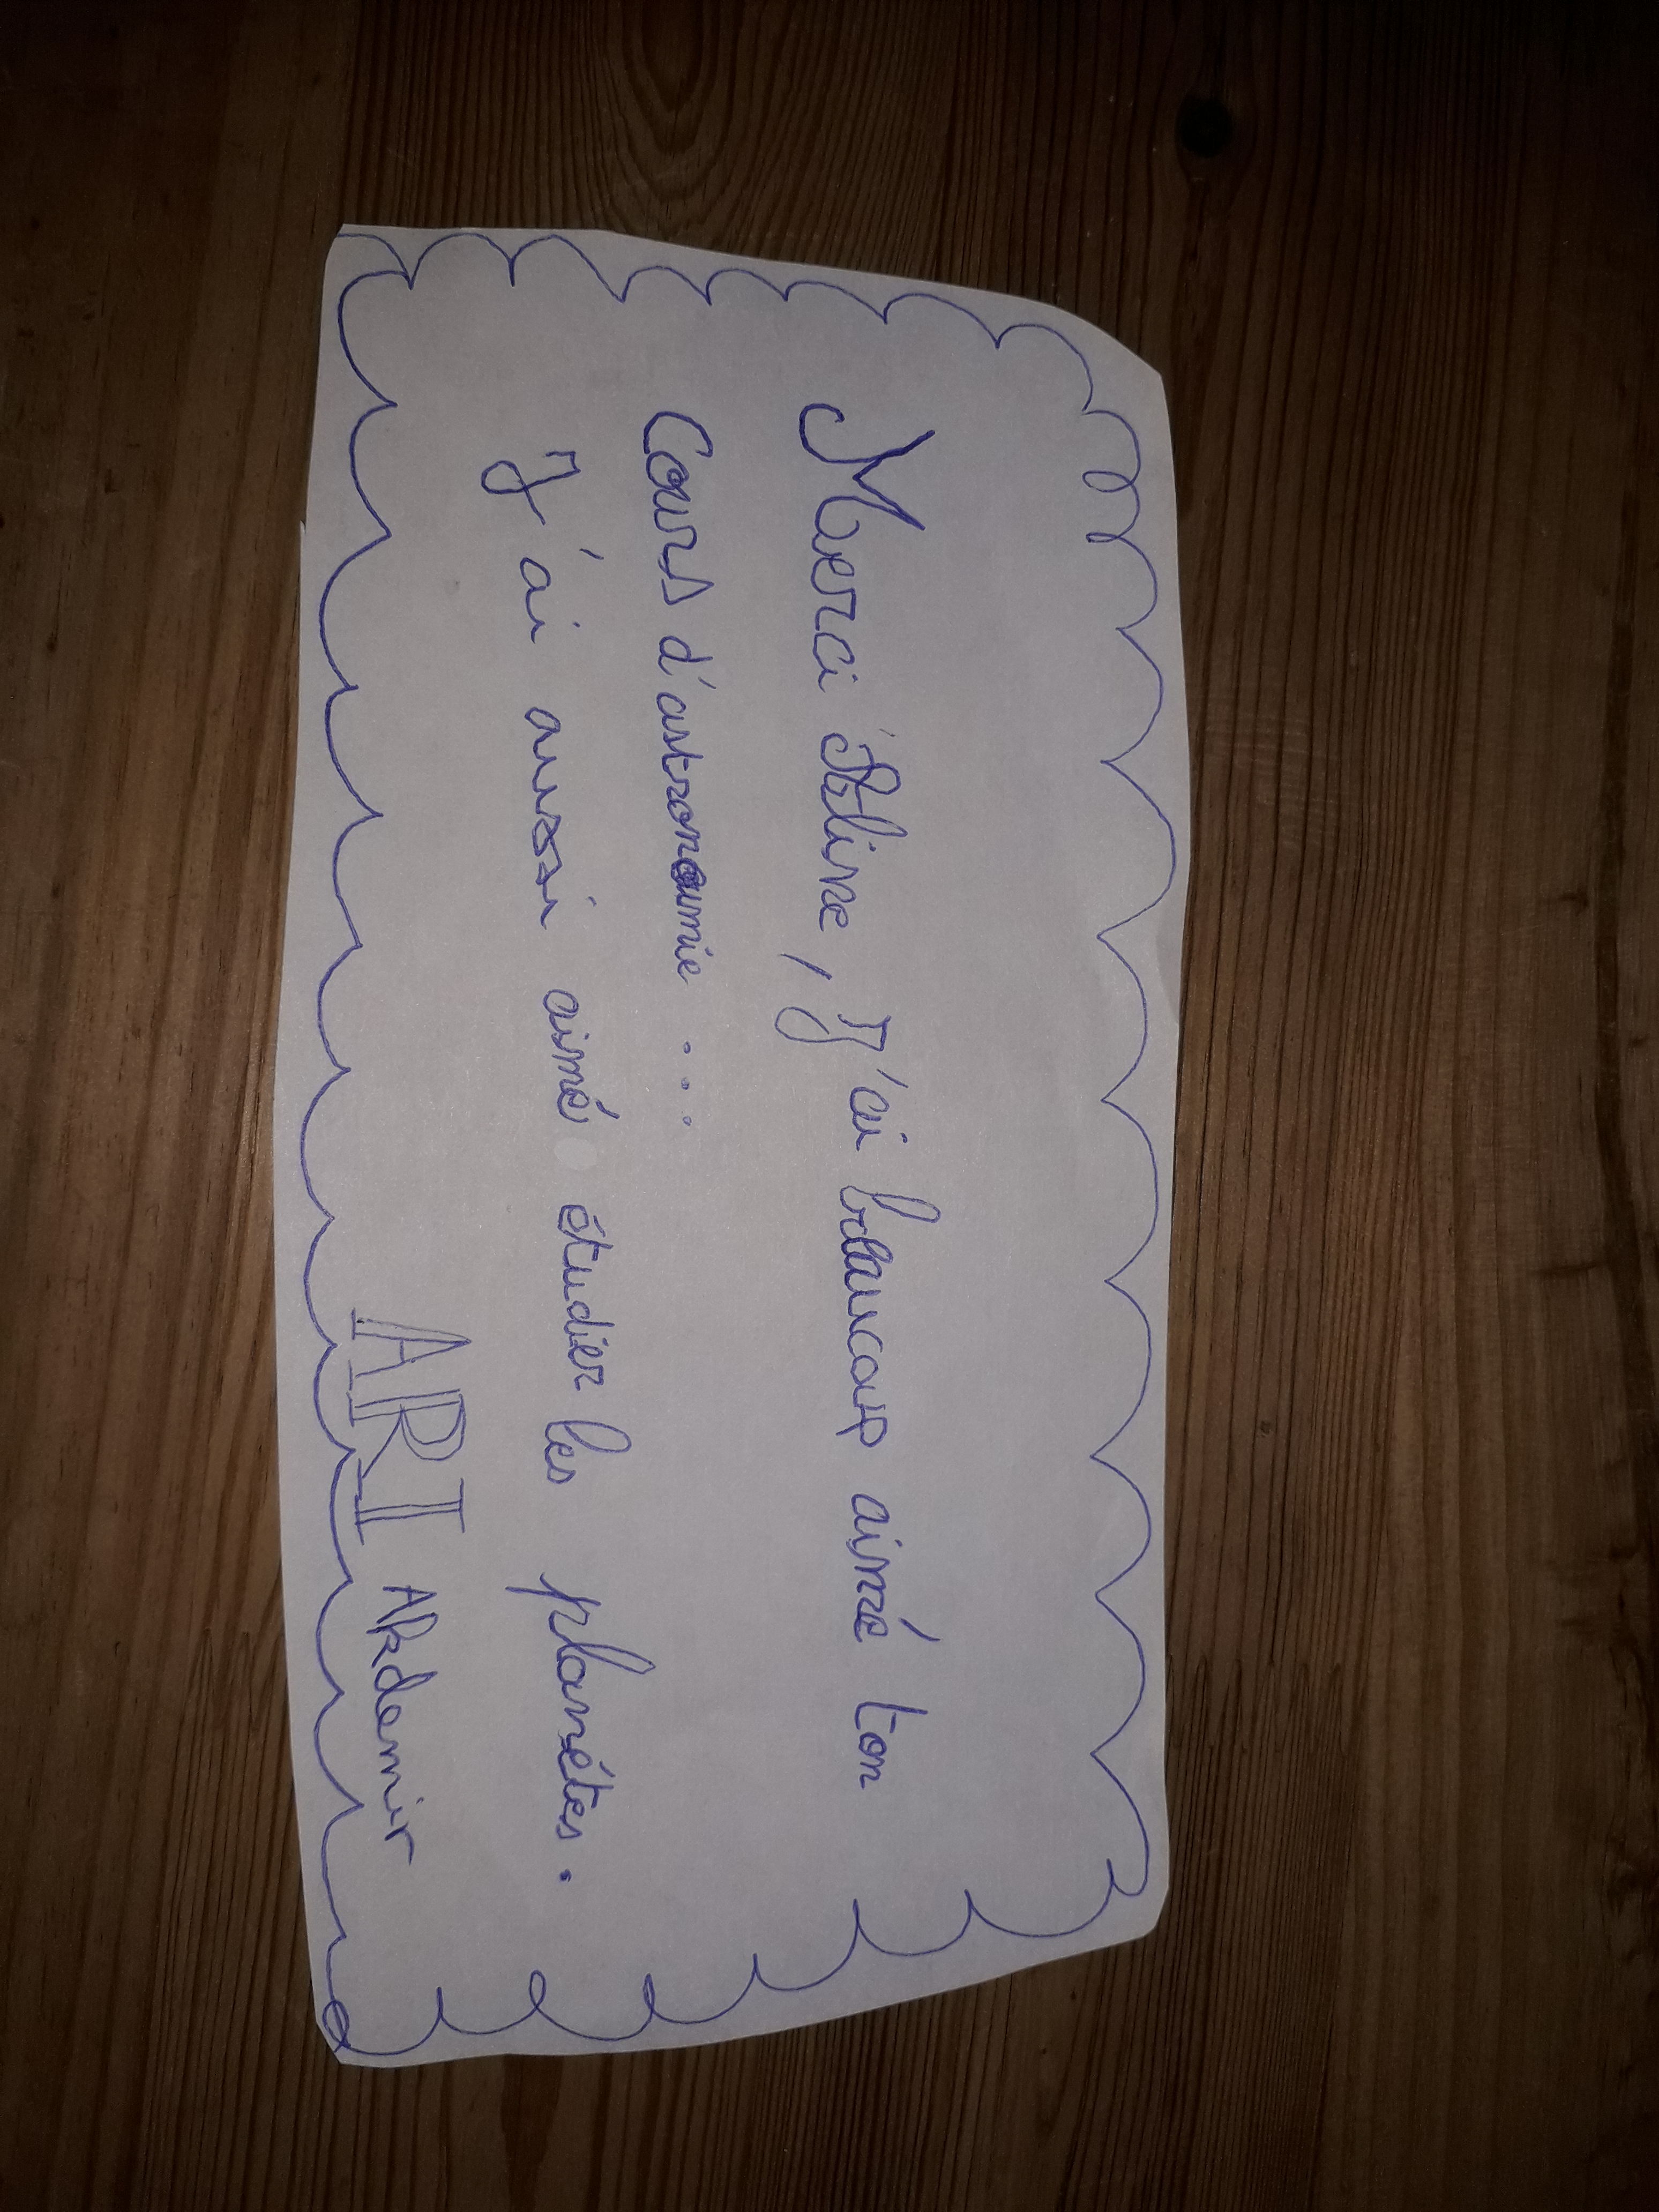 Merci Aline, J'ai beaucoup aimé ton
Cours d'astronomie...
J'ai aussi aimé étudier les planétes.
ARI Akdemir